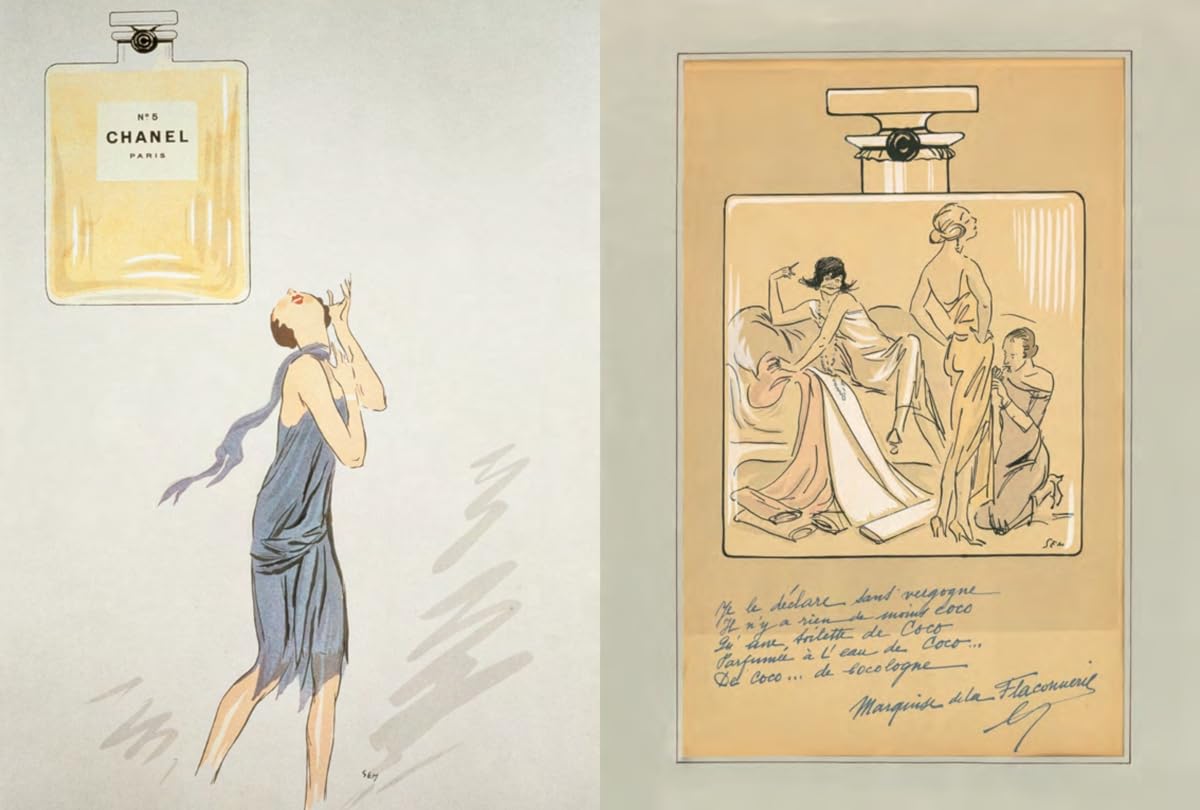 Nº5
CHANEL
PARIS
SEM
SEM
Je le déclare sans vergogne
Il n'y a rien de moins coco
Qu'une toilette de Coco
Parfumée à L'eau de Coco...
De Coco... de Cocologne
Marquise de la Flaconnerie